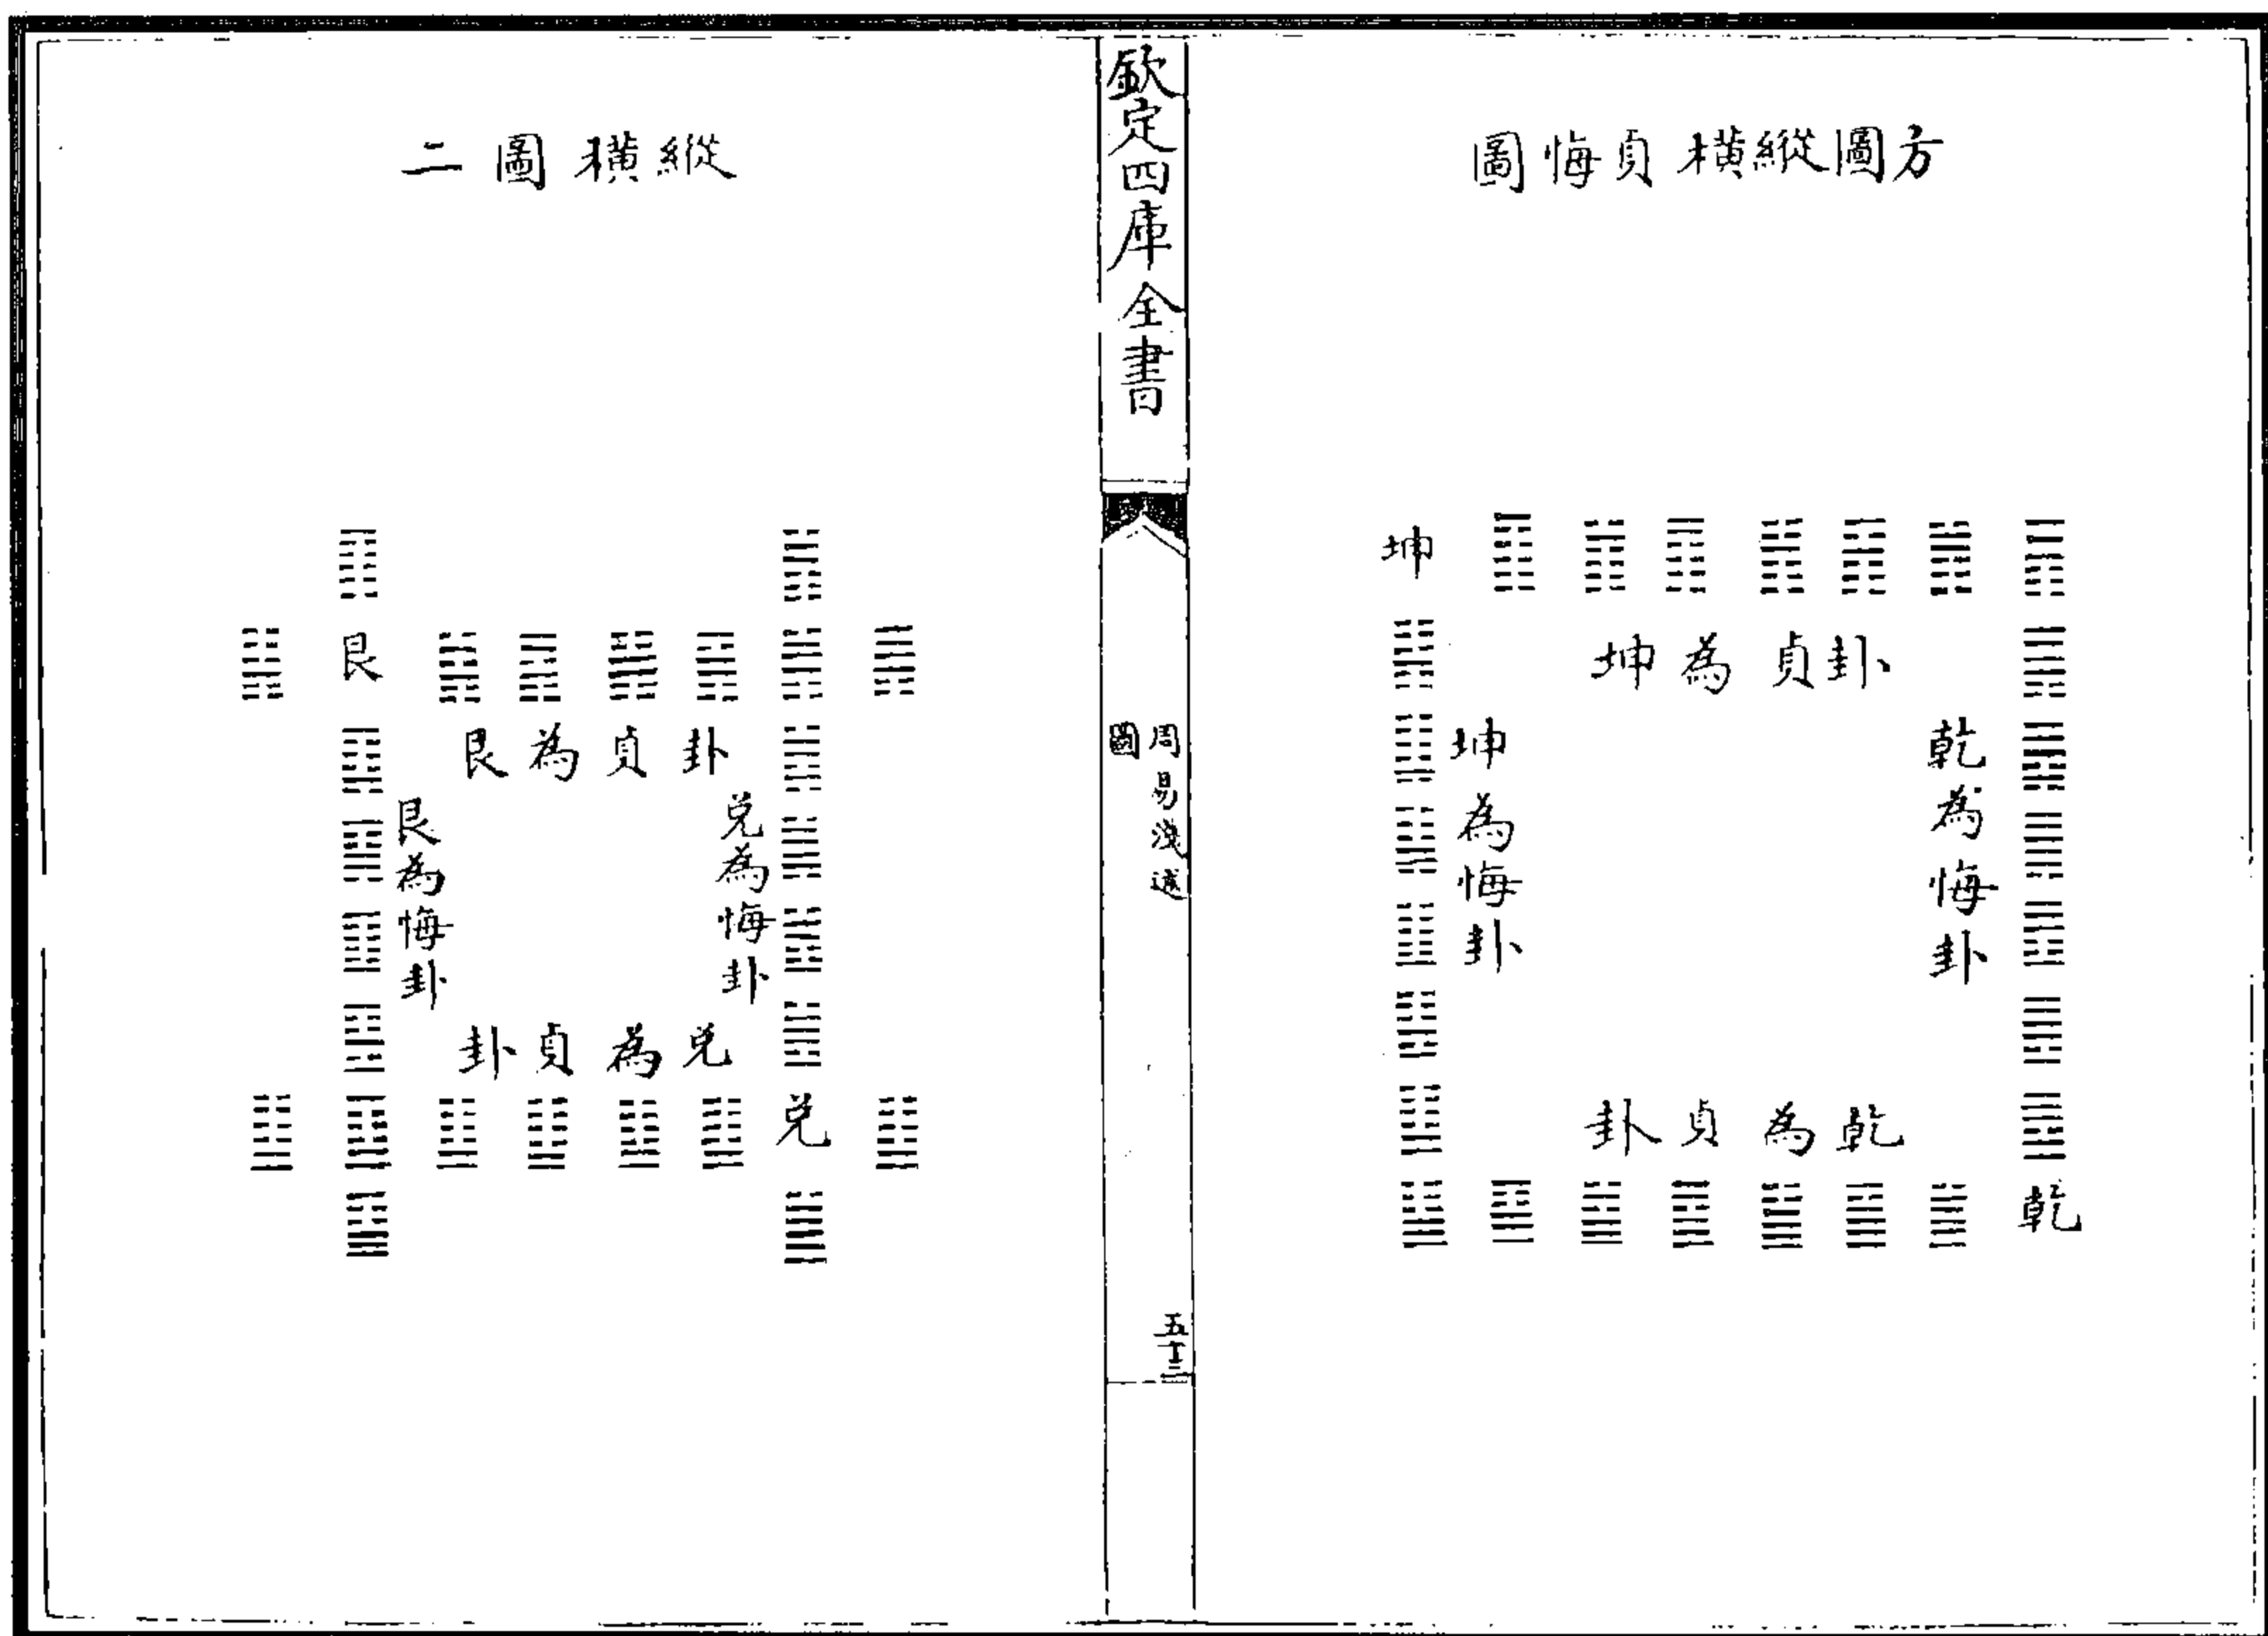 方圖縱橫貞悔圖
坤
坤為貞卦
乾為悔卦
坤為悔卦
乾為貞卦
乾
欽定四庫全書
周易淺述
圖
五十三
縱橫圖二
艮
艮為貞卦
兌為悔卦
艮為悔卦
兌為貞卦
兌